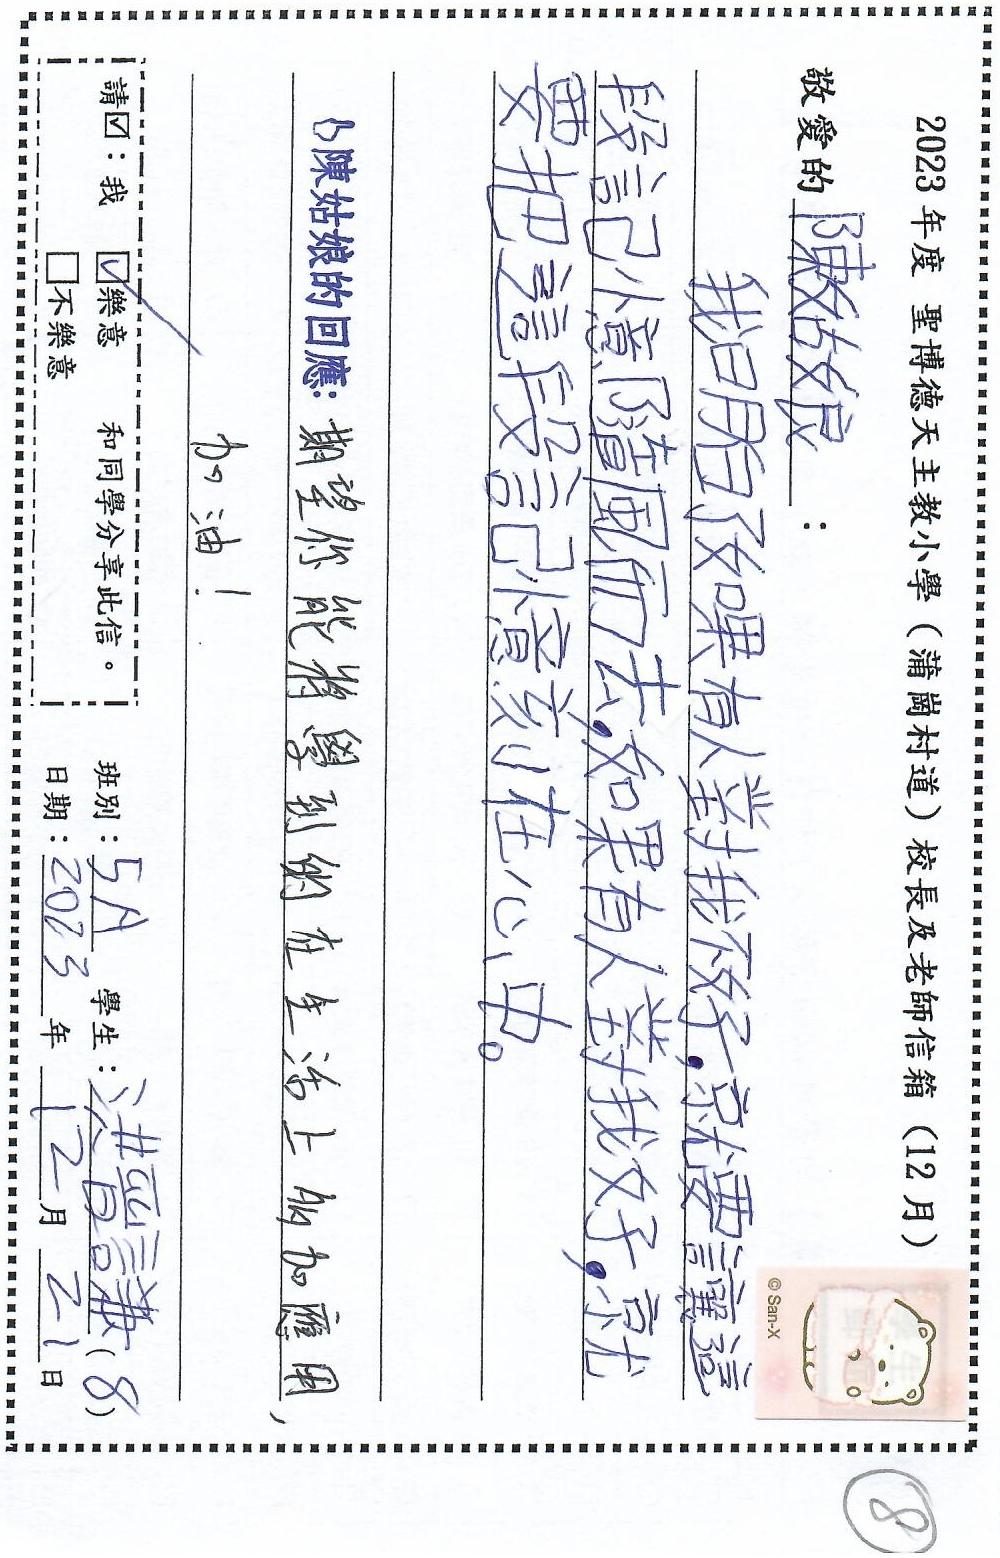 2023 年度 聖博德天主教小學（蒲崗村道）校長及老師信箱（12 月）
敬愛的 陳姑娘 ：
我明白了如果有人對我不好，就要讓這
段記憶隨風而去，如果有人對我好，就
要把這段記憶刻在心中。
陳姑娘的回應：期望你能將學到的在生活上多加應用，
加油！
請☑：我 ☑樂意 和同學分享此信。
□不樂意
班別：5A 學生：洪晉謙（8）
日期：2023 年 12 月 21 日
© San-X
8